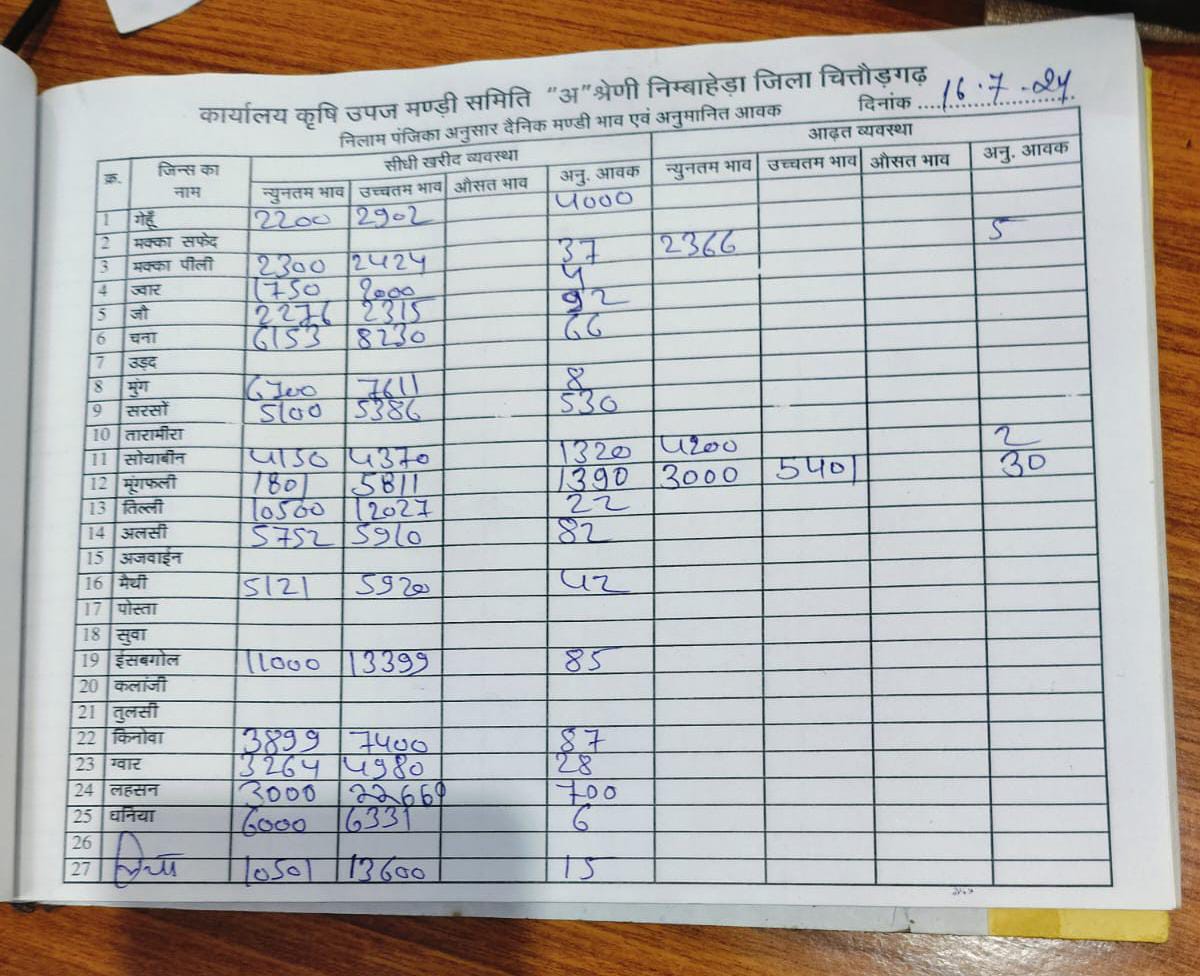 कार्यालय कृषि उपज मण्डी समिति "अ" श्रेणी निम्बाहेड़ा जिला चित्तौड़गढ़
निलाम पंजिका अनुसार दैनिक मण्डी भाव एवं अनुमानित आवक दिनांक 16.7.24
क्र. जिन्स का नाम सीधी खरीद व्यवस्था आढ़त व्यवस्था
न्युनतम भाव उच्चतम भाव औसत भाव अनु. आवक न्युनतम भाव उच्चतम भाव औसत भाव अनु. आवक
1 गेहूँ 2200 2902 4000
2 मक्का सफेद 5
3 मक्का पीली 2300 2424 37 2366
4 ज्वार 1750 2000 4
5 जौ 2276 2315 92
6 चना 6153 8230 66
7 उड़द
8 मुंग 6700 7611 8
9 सरसों 5100 5386 530
10 तारामीरा
11 सोयाबीन 4150 4370 1320 4200 2
12 मूंगफली 1801 5811 1390 3000 5401 30
13 तिल्ली 10500 12027 22
14 अलसी 5752 5910 82
15 अजवाईन
16 मैथी 5121 5920 42
17 पोस्ता
18 सुवा
19 ईसबगोल 11000 13399 85
20 कलांजी
21 तुलसी
22 किनोवा 3899 7400 87
23 ग्वार 3264 4980 28
24 लहसन 3000 22669 700
25 धनिया 6000 6331 6
26
27 10501 13600 15